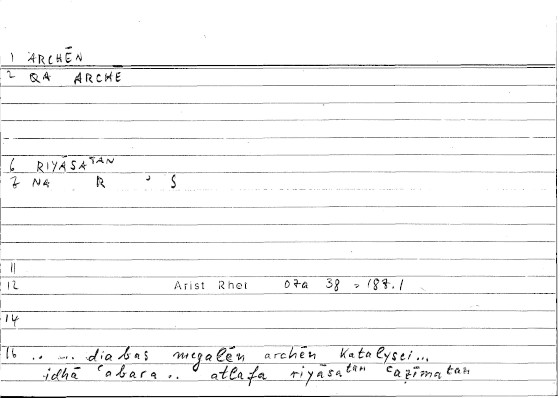 1 ARCHĒN
2 QA ARCHE
6 RIYĀSATAN
7 NA R ʾ S
11
12 Arist Rhet 07a 38 = 187.1
14
16 .. ... diabas megalēn archēn katalysei...
idhā ʿabara .. atlafa riyāsatan ʿaẓīmatan